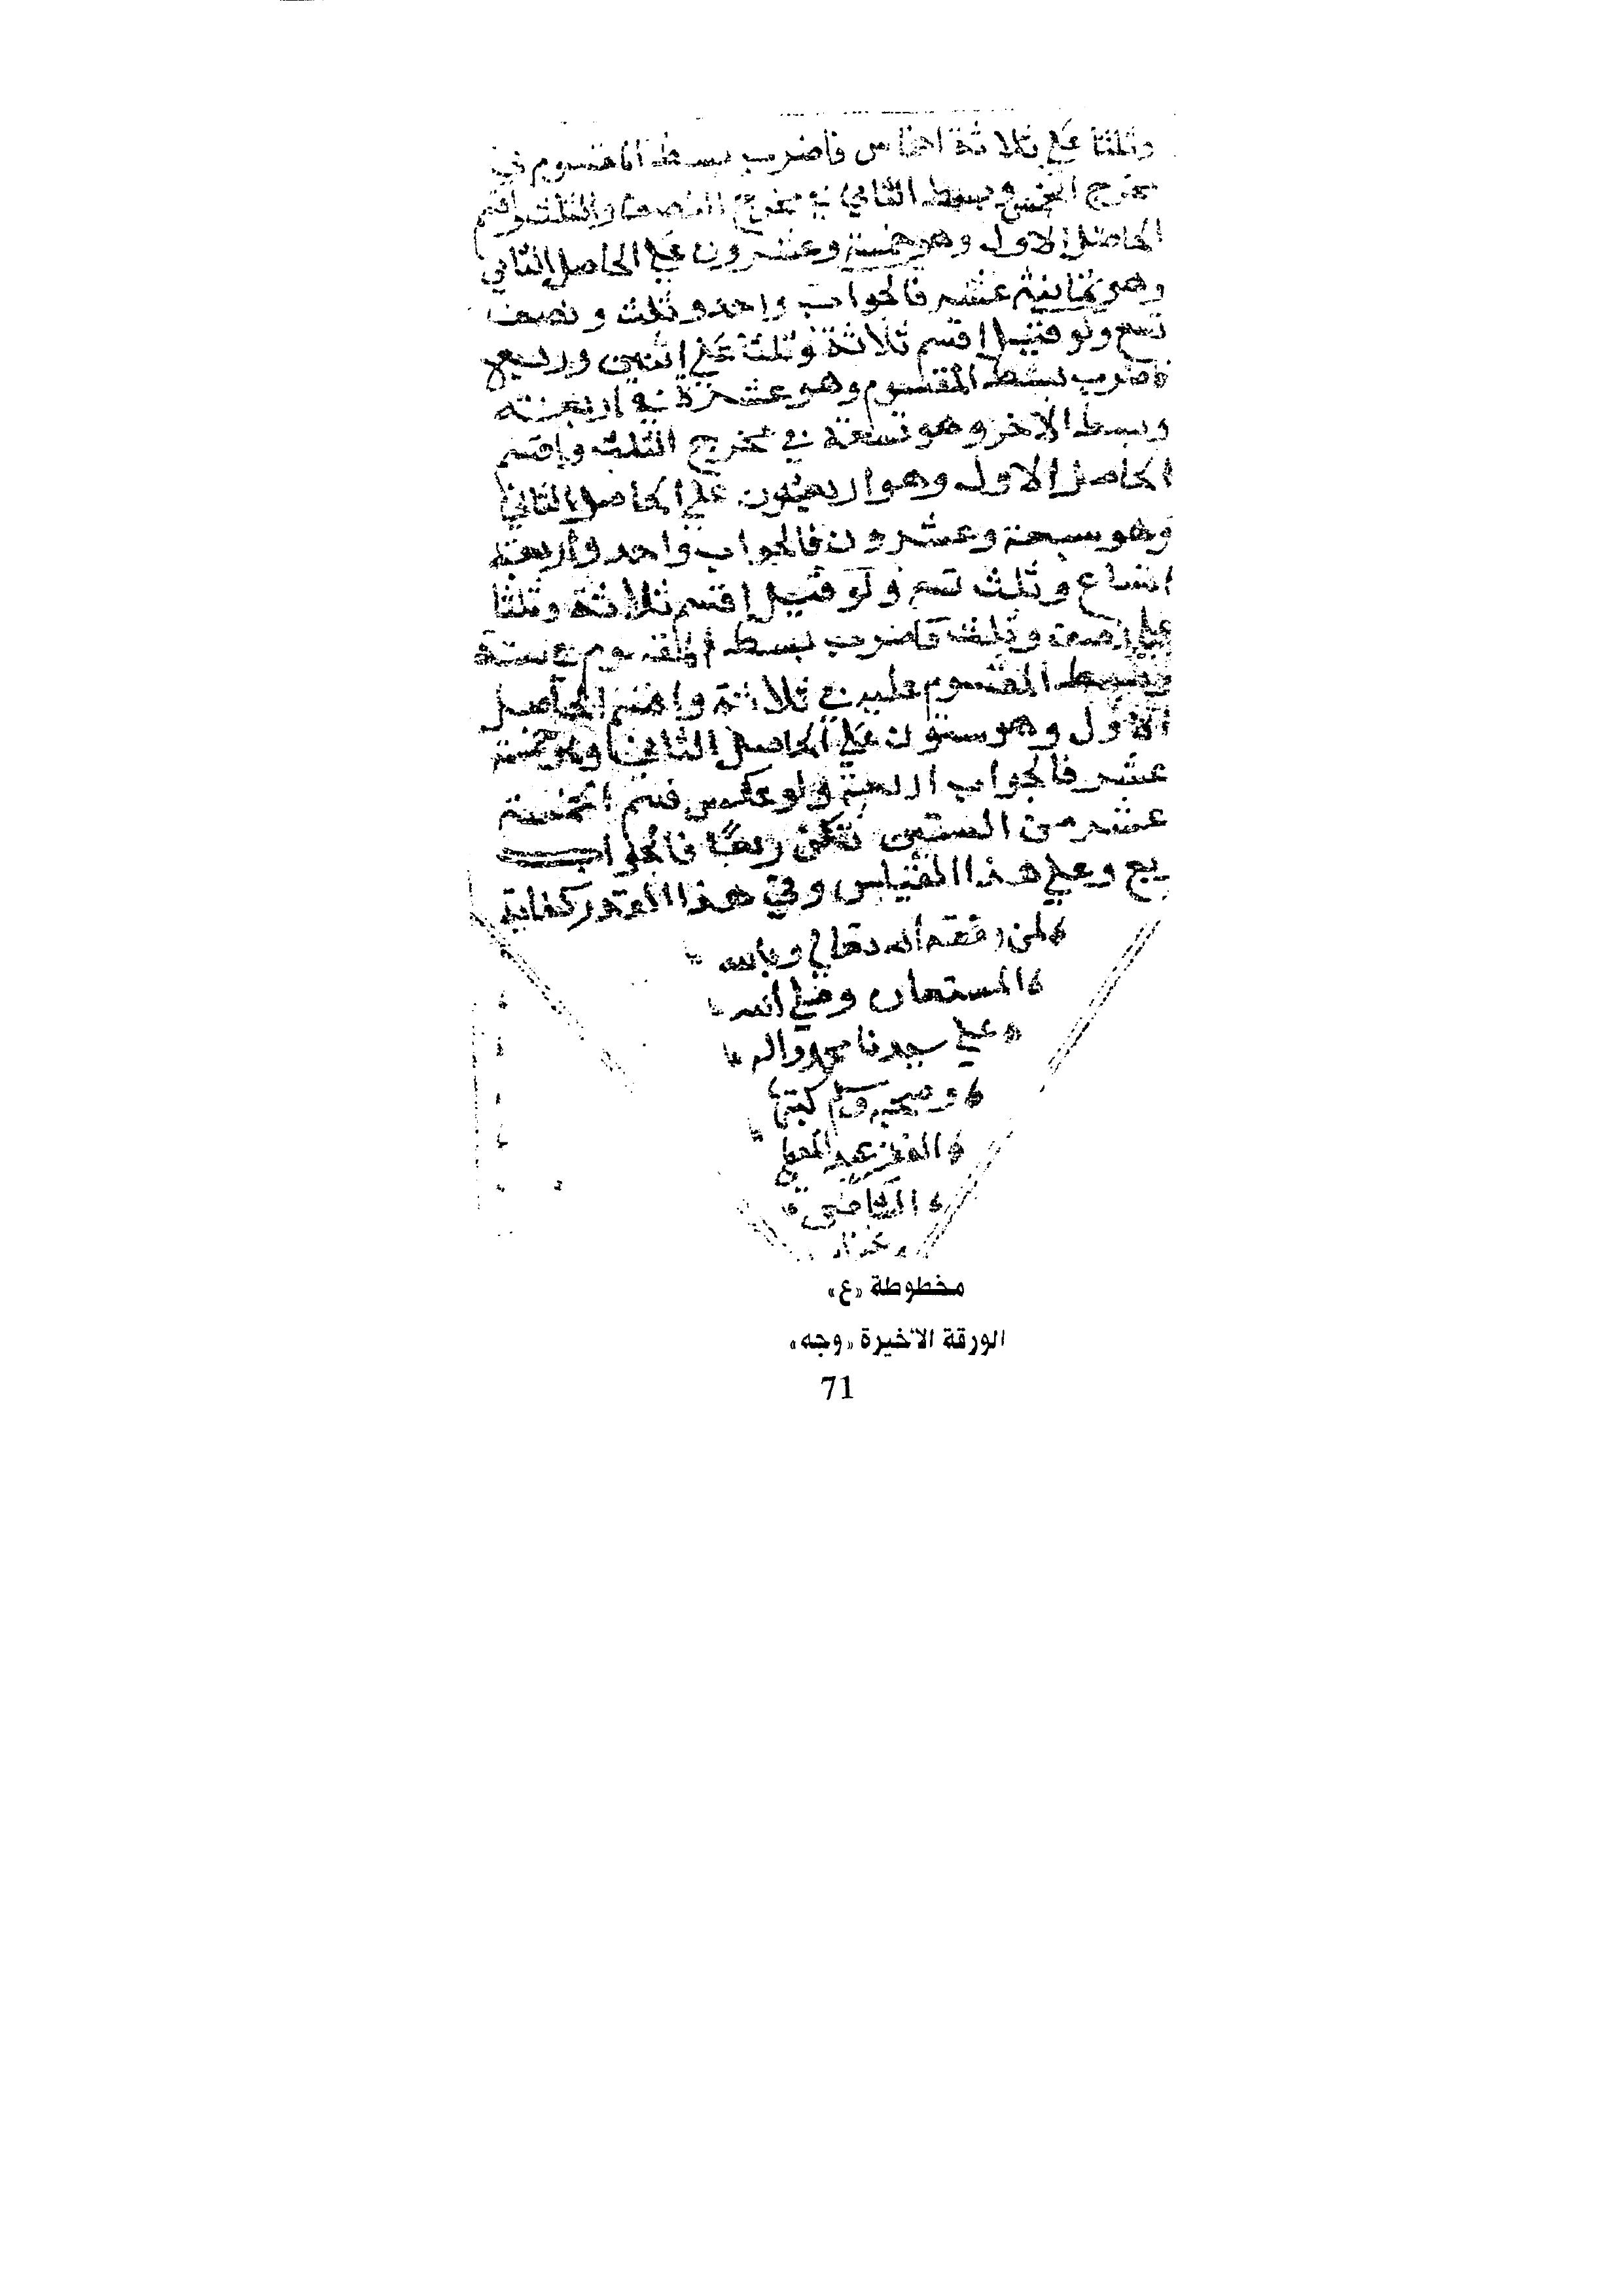 وثلثا على ثلاثة اخماس فاضرب بسط المقسوم في
مخرج الخمس وبسط الثاني في مخرج النصف والثلث واقسم
الحاصل الاول وهو خمسة وعشرون على الحاصل الثاني
وهو ثمانية عشر فالجواب واحد وثلث ونصف
تسع ولو قيل اقسم ثلاثة وثلثا على اثنين وربع
فاضرب بسط المقسوم وهو عشرة في اربعة
وبسط الاخر وهو تسعة في مخرج الثلث واقسم
الحاصل الاول وهو اربعون على الحاصل الثاني
وهو سبعة وعشرون فالجواب واحد واربعة
اتساع وثلث تسع ولو قيل اقسم ثلاثة وثلثا
على نصف وثلث فاضرب بسط المقسوم في ستة
وبسط المقسوم عليه في ثلاثة واقسم الحاصل
الاول وهو ستون على الحاصل الثاني وهو خمسة
عشر فالجواب اربعة ولو عكس قسم الخمسة
عشر من الستين تكن ربعا فالجواب
ربع وعلى هذا القياس وفي هذا القدر كفاية
لمن وفقه الله تعالى وبالله
المستعان وصلى الله
على سيدنا محمد واله
وصحبه وسلم كتبها
الفقير عبد المعطي
الشافعي
مخطوطة «ع»
الورقة الأخيرة «وجه»
71